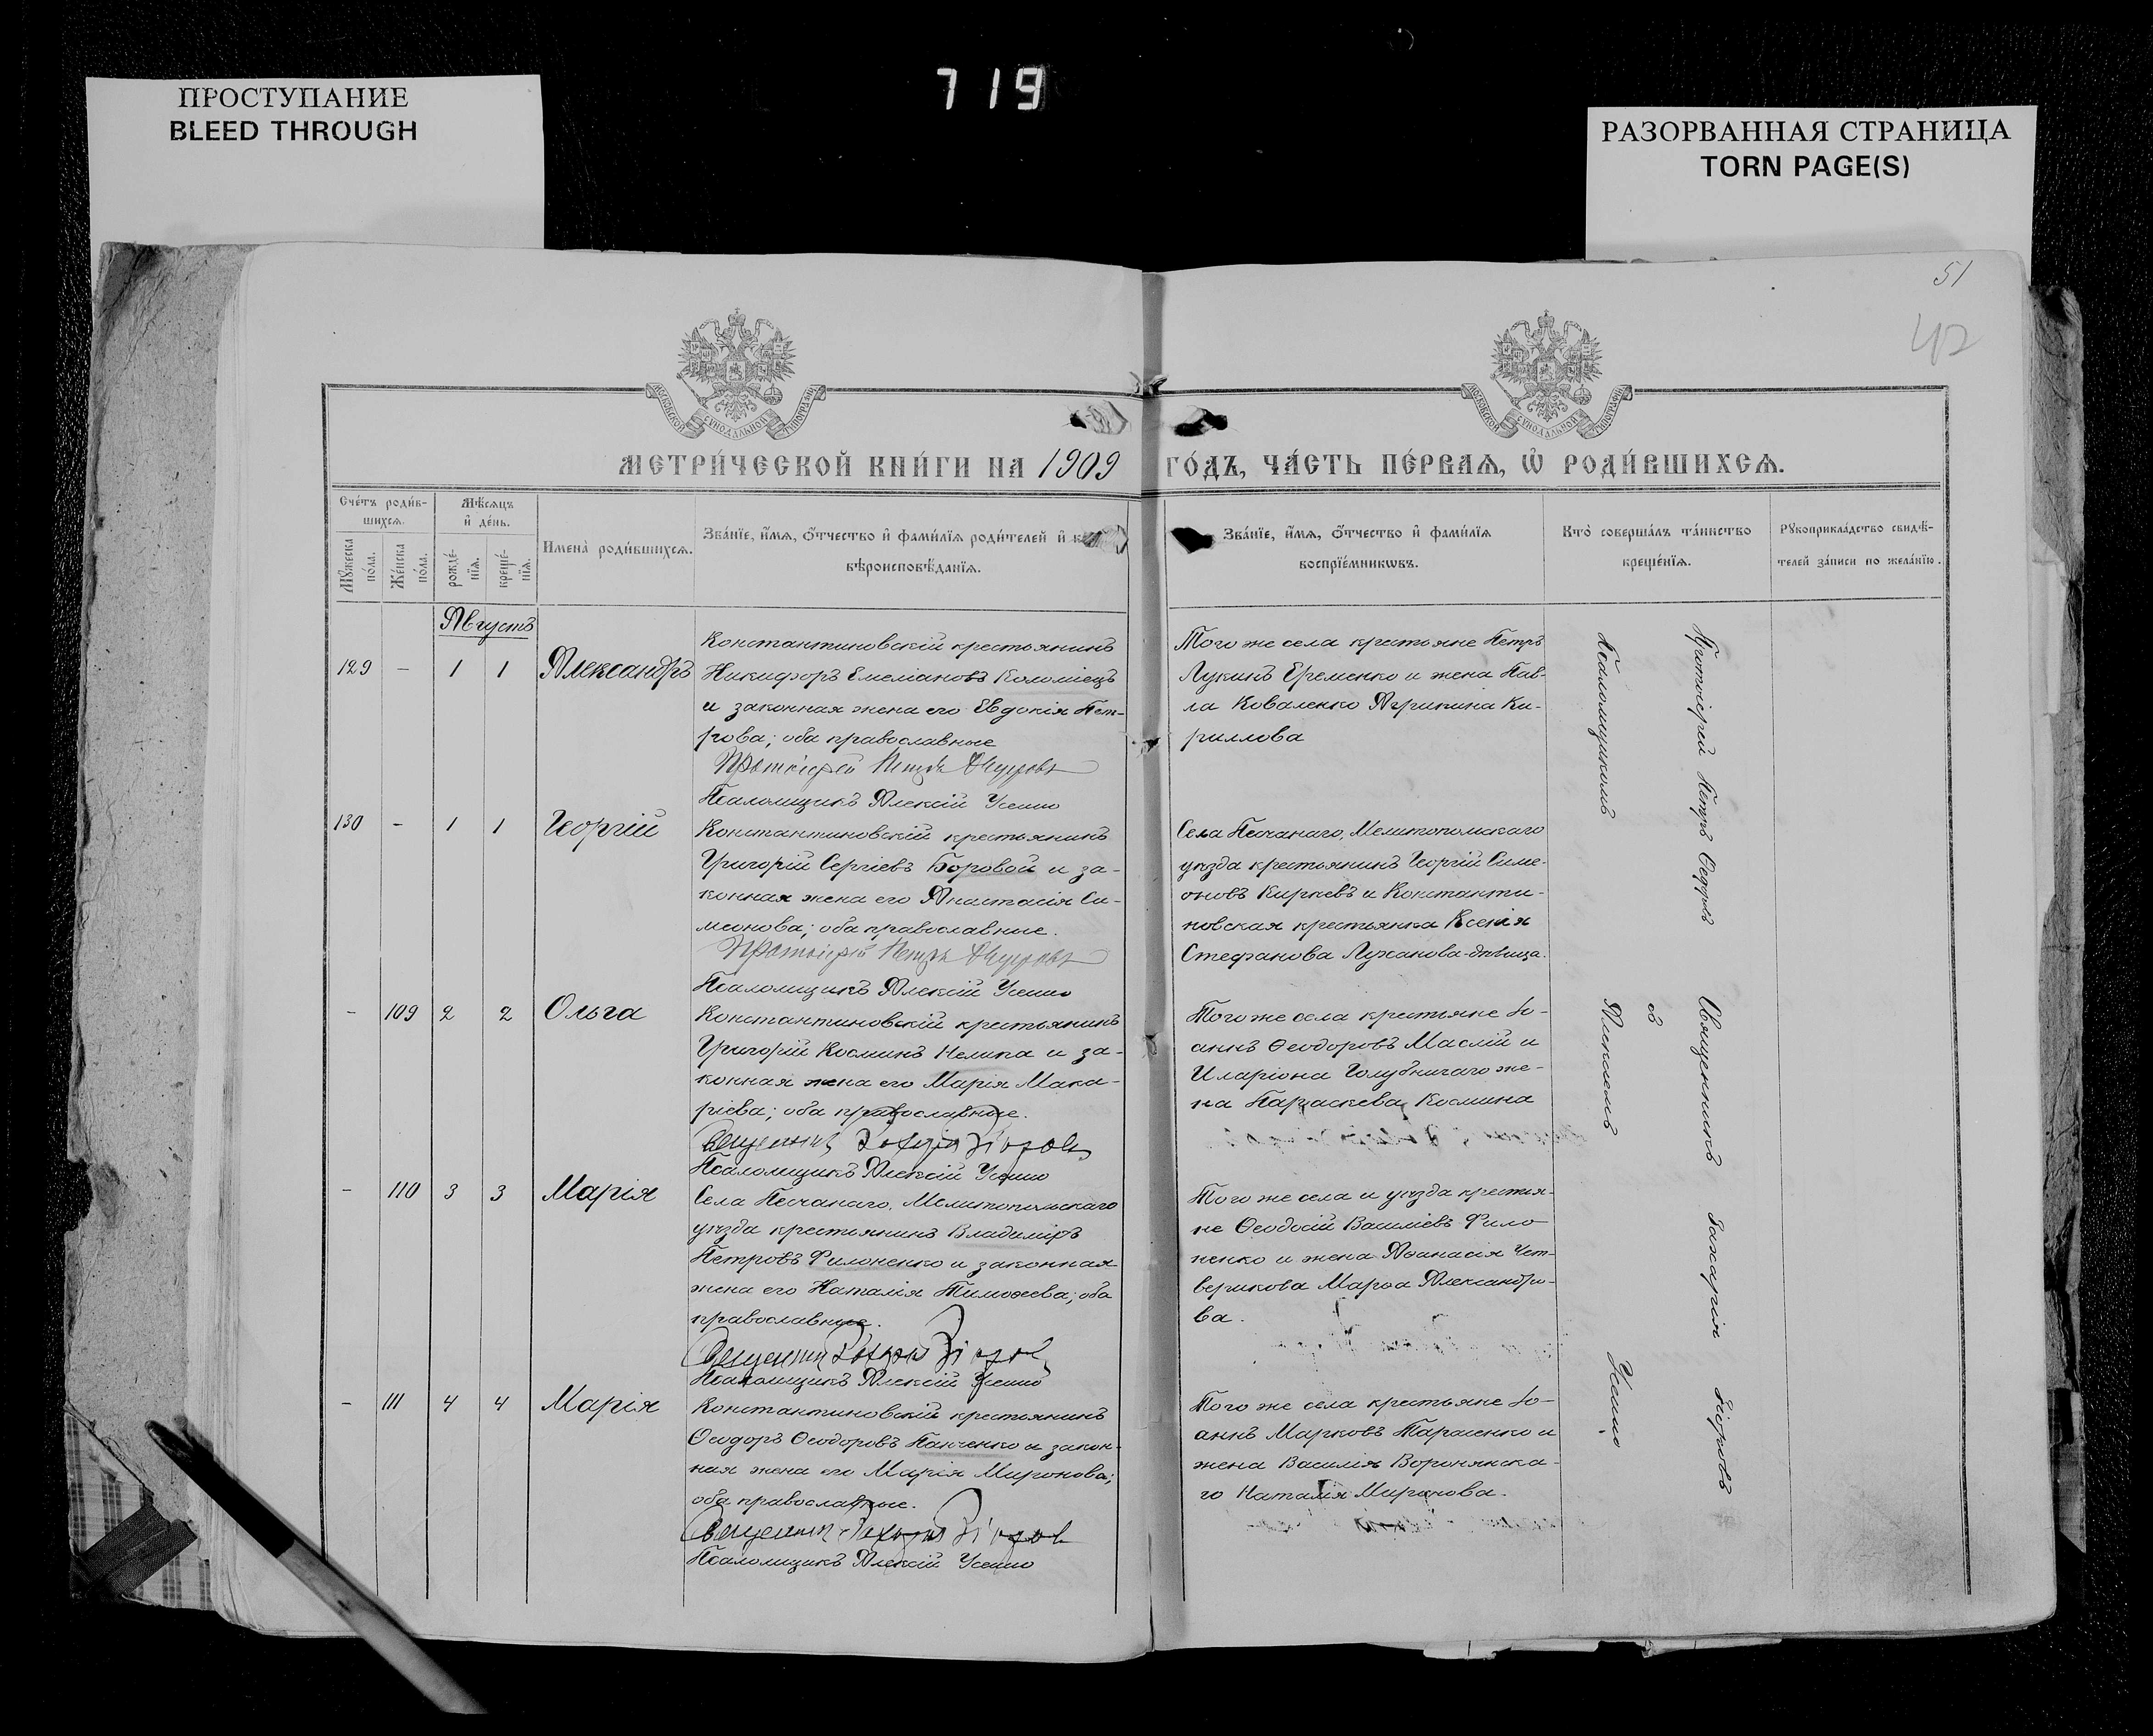 719
ПРОСТУПАНИЕ
BLEED THROUGH
РАЗОРВАННАЯ СТРАНИЦА
TORN PAGE(S)
51
42
МОСКОВСКОЙ СѴНОДАЛЬНОЙ ТИПОГРАФІИ
МОСКОВСКОЙ СѴНОДАЛЬНОЙ ТИПОГРАФІИ
МЕТРИ́ЧЕСКОЙ КНИ́ГИ НА 1909 ГО́ДЪ, ЧА́СТЬ ПЕ́РВАѦ, Ѡ҆ РОДИ́ВШИХСѦ.
Сче́тъ роди́в-
шихсѧ.
Мѣ́сѧцъ
и҆ де́нь.
Мꙋ́жеска
по́ла.
Же́нска
по́ла.
рожде́-
нїѧ.
креще́-
нїѧ.
Имена̀ роди́вшихсѧ.
Зва́нїе, и҆́мѧ, ѻ҆́тчество и҆ фами́лїѧ роди́телей и҆
вѣроисповѣ́данїѧ.
Зва́нїе, и҆́мѧ, ѻ҆́тчество и҆ фами́лїѧ
воспрїе́мникѡвъ.
Кто̀ соверша́лъ та́инство
креще́нїѧ.
Рꙋкоприкла́дство свидѣ́-
телей за́писи по жела́нїю.
Августъ
129 - 1 1 Александръ
Константиновскій крестьянинъ
Никифоръ Емеліановъ Коломіецъ
и законная жена его Евдокія Пет-
рова; оба православные
Протоіерей Петръ
Псаломщикъ Алексій Усенко
Того же села крестьяне Петръ
Лукинъ Еременко и жена Пав-
ла Коваленко Агрипина Ки-
риллова
130 - 1 1 Георгій
Константиновскій крестьянинъ
Григорій Сергіевъ Боровой и за-
конная жена его Анастасія Си-
меонова; оба православные.
Протоіерей Петръ
Псаломщикъ Алексій Усенко
Села Песчанаго, Мелитопольскаго
уѣзда крестьянинъ Георгій Симе-
оновъ Киріевъ и Константи-
новская крестьянка Ксенія
Стефанова Луханова-дѣвица.
- 109 2 2 Ольга
Константиновскій крестьянинъ
Григорій Космин​ъ Нелипа и за-
конная жена его Марія Мака-
ріева; оба православные.
Священникъ Захарія
Псаломщикъ Алексій Усенко
Того же села крестьяне Іо-
аннъ Ѳеодоровъ Маслій и
Иларіона Голубничаго же-
на Параскева Космина
- 110 3 3 Марія
Села Песчанаго, Мелитопольскаго
уѣзда крестьянинъ Владиміръ
Петровъ Филоненко и законная
жена его Наталія Тимоѳеева; оба
православные.
Священникъ Захарія
Псаломщикъ Алексій Усенко
Того же села и уѣзда крестья-
не Ѳеодосій Василіевъ Фило-
ненко и жена Аѳанасія Чет-
верикова Марѳа Александро-
ва.
- 111 4 4 Марія
Константиновскій крестьянинъ
Ѳеодоръ Ѳеодоровъ Панченко и закон-
ная жена его Марія Миронова;
оба православные.
Священникъ Захарія
Псаломщикъ Алексій Усенко
Того же села крестьяне Іо-
аннъ Марковъ Тарасенко и
жена Василія Воронянска-
го Наталія Миронова.
Протоіерей Петръ
Священникъ Захарія
съ
Псаломщикомъ Алексіемъ Усенко